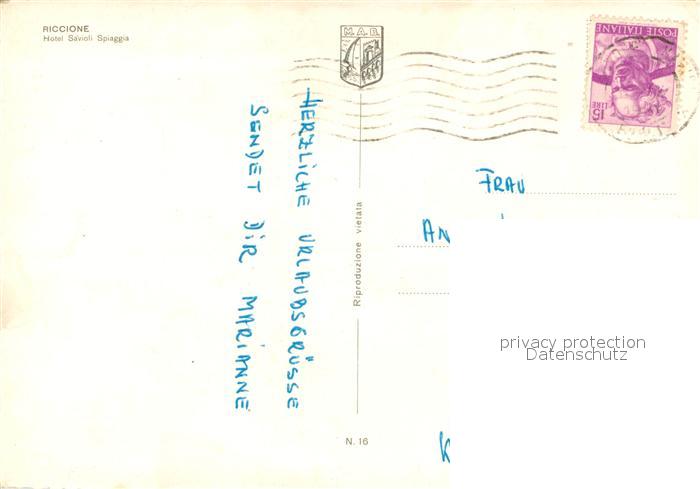 RICCIONE
Hotel Savioli Spiaggia
M.A.B.
POSTE ITALIANE
15 LIRE
HERZLICHE URLAUBSGRÜSSE
SENDET DIR MARIANNE
Riproduzione vietata
FRAU
AN
privacy protection
Datenschutz
N. 16